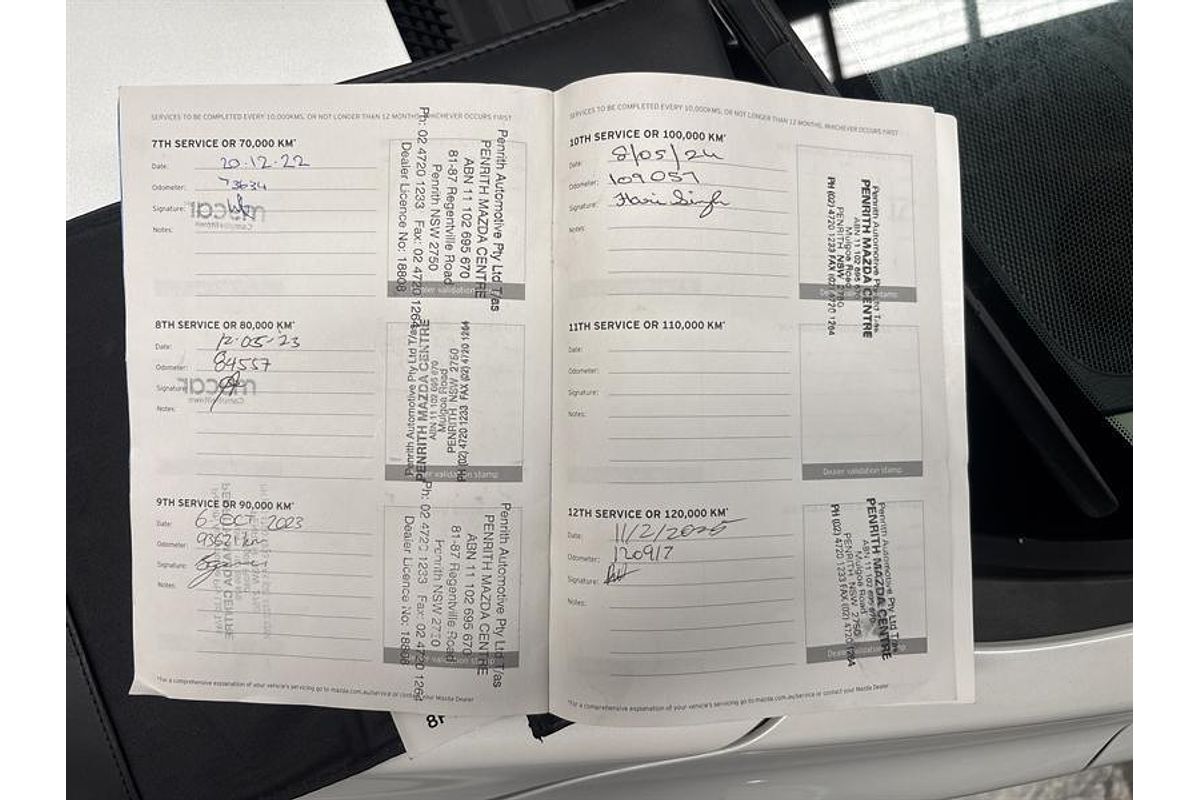 SERVICES TO BE COMPLETED EVERY 10,000KMS, OR NOT LONGER THAN 12 MONTHS, WHICHEVER OCCURS FIRST
7TH SERVICE OR 70,000 KM*
Date: 20-12-22
Odometer: 73634
Signature:
Notes:
Penrith Automotive Pty Ltd T/as
PENRITH MAZDA CENTRE
ABN 11 102 695 670
81-87 Regentville Road
Penrith NSW 2750
Ph: 02 4720 1233 Fax: 02 4720 1264
Dealer Licence No: 18808
Dealer validation
8TH SERVICE OR 80,000 KM*
Date: 12-05-23
Odometer: 84557
Signature:
Notes:
Penrith Automotive Pty Ltd T/as
PENRITH MAZDA CENTRE
ABN 11 102 695 670
Mulgoa Road
PENRITH NSW 2750
PH (02) 4720 1233 FAX (02) 4720 1264
Dealer validation stamp
9TH SERVICE OR 90,000 KM*
Date: 6 OCT 2023
Odometer: 93621km
Signature:
Notes:
Penrith Automotive Pty Ltd T/as
PENRITH MAZDA CENTRE
ABN 11 102 695 670
81-87 Regentville Road
Penrith NSW 2750
Ph: 02 4720 1233 Fax: 02 4720 1264
Dealer Licence No: 18808
Dealer validation stamp
*For a comprehensive explanation of your vehicle's servicing go to mazda.com.au/service or contact your Mazda Dealer
SERVICES TO BE COMPLETED EVERY 10,000KMS, OR NOT LONGER THAN 12 MONTHS, WHICHEVER OCCURS FIRST
10TH SERVICE OR 100,000 KM*
Date: 8/05/24
Odometer: 109057
Signature: Hari Singh
Notes:
Penrith Automotive Pty Ltd T/as
PENRITH MAZDA CENTRE
ABN 11 102 695 670
Mulgoa Road
PENRITH NSW 2750
PH (02) 4720 1233 FAX (02) 4720 1264
11TH SERVICE OR 110,000 KM*
Date:
Odometer:
Signature:
Notes:
Dealer validation stamp
12TH SERVICE OR 120,000 KM*
Date: 11/2/2025
Odometer: 120917
Signature:
Notes:
Penrith Automotive Pty Ltd T/as
PENRITH MAZDA CENTRE
ABN 11 102 695 670
Mulgoa Road
PENRITH NSW 2750
PH (02) 4720 1233 FAX (02) 4720 1264
Dealer validation stamp
*For a comprehensive explanation of your vehicle's servicing go to mazda.com.au/service or contact your Mazda Dealer